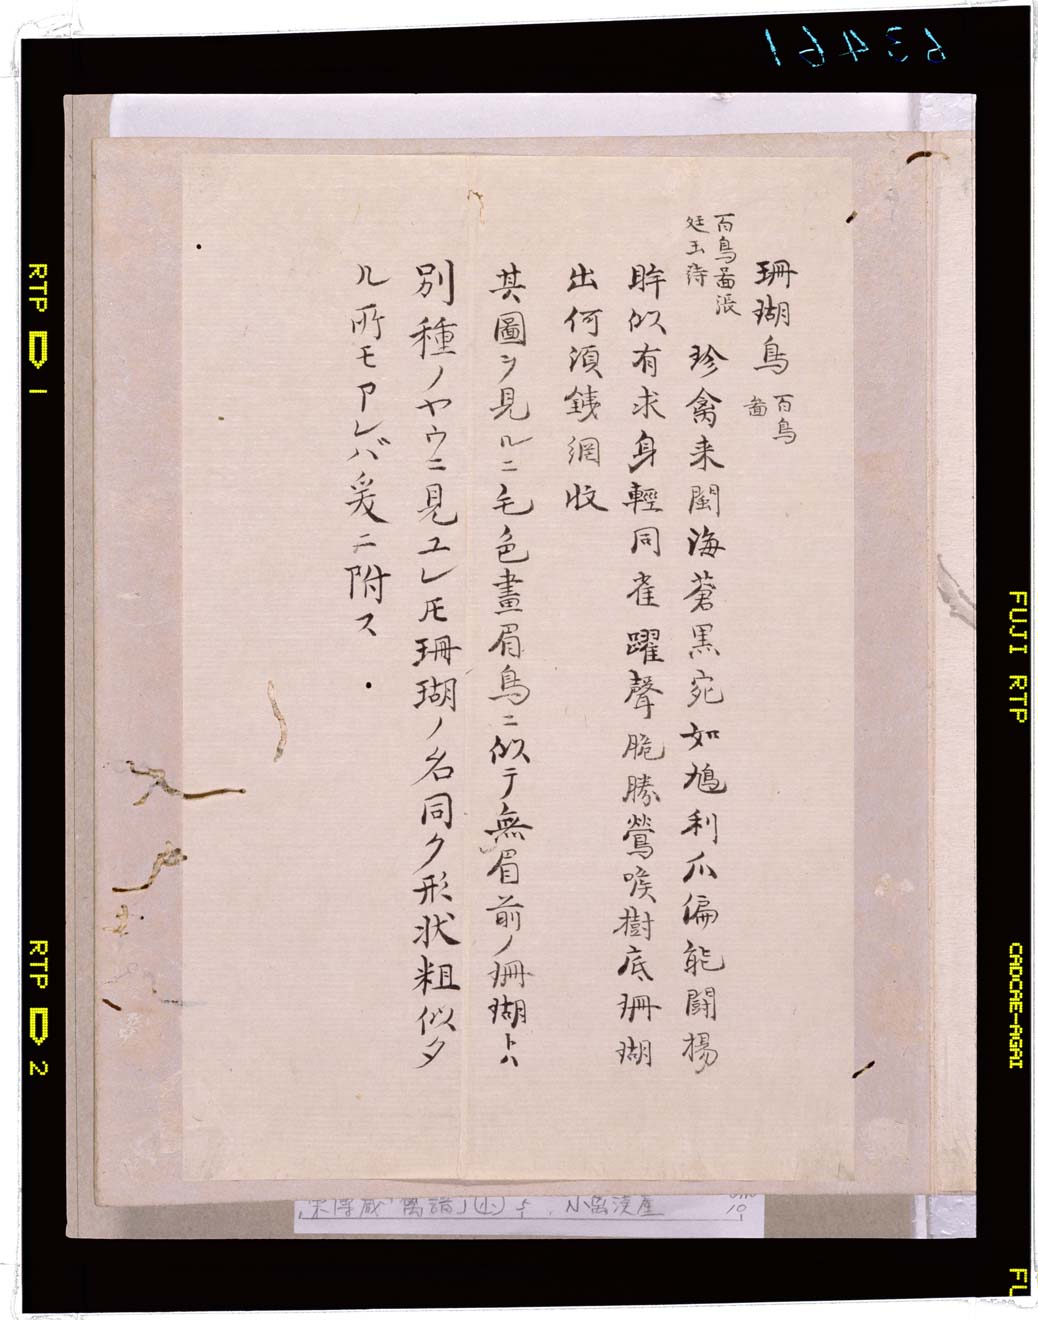 63461
珊瑚鳥 百鳥啚
百鳥啚張
廷玉詩
珍禽来閩海蒼黒宛如鳩利爪偏能闘揚
眸似有求身輕同雀躍聲脆勝鶯喉樹底珊瑚
出何須銕網收
其圖ヲ見ルニ毛色畫眉鳥ニ似テ無眉前ノ珊瑚トハ
別種ノヤウニ見ユレ𪜈珊瑚ノ名同ク形状粗似タ
ル所モアレバ爰ニ附ス
RTP D 1
RTP D 2
FUJI RTP
CADCAE-AGAI
FU